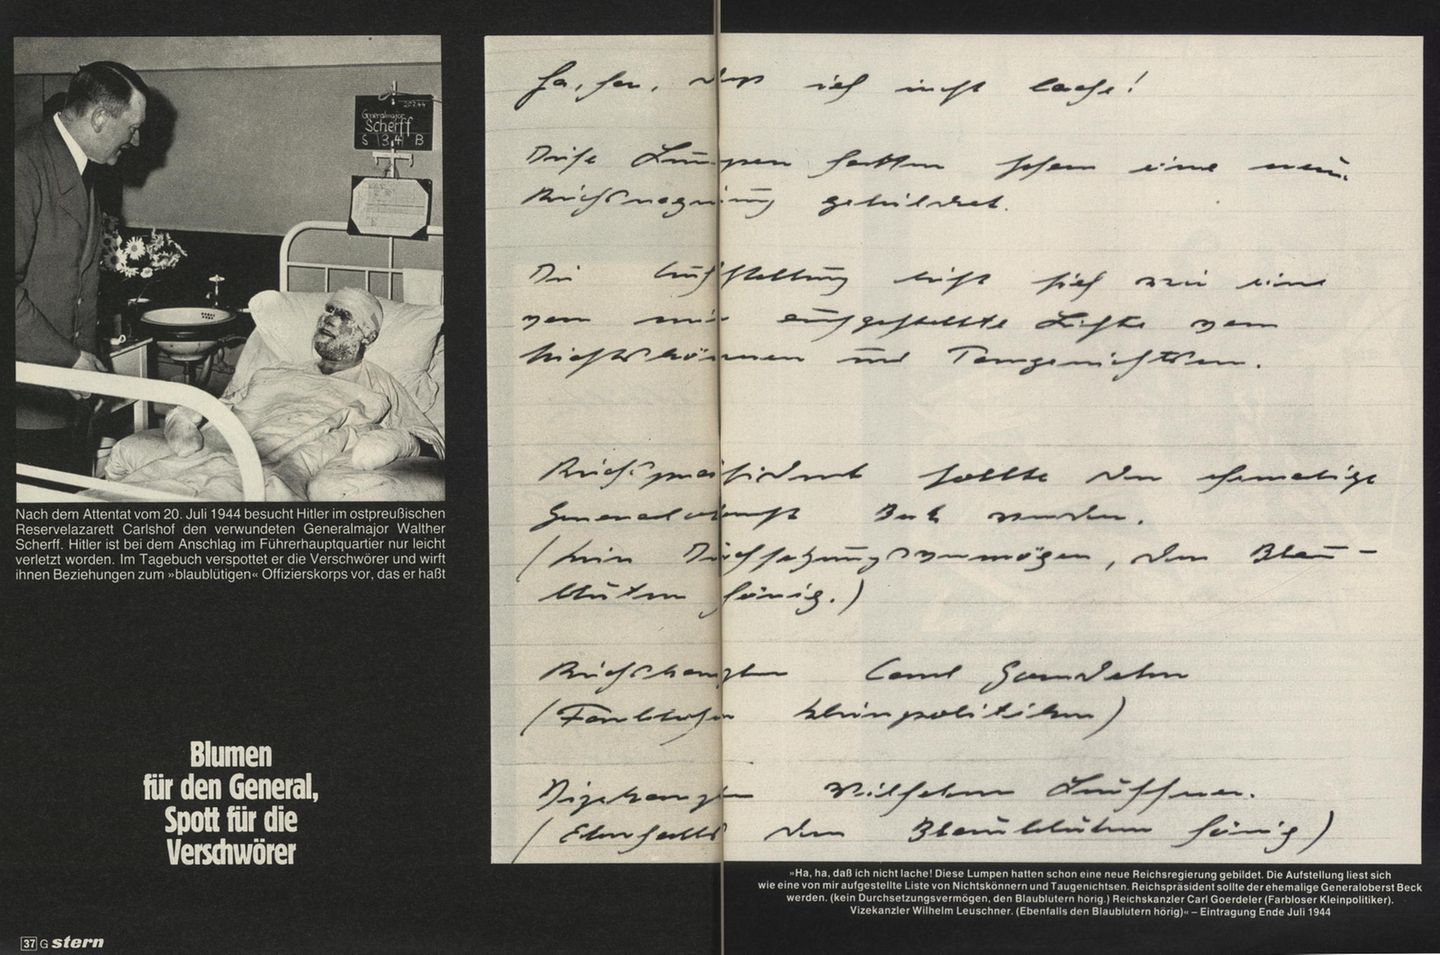 20.7.44
Generalmajor
Scherff
S 34 B
Nach dem Attentat vom 20. Juli 1944 besucht Hitler im ostpreußischen
Reservelazarett Carlshof den verwundeten Generalmajor Walther
Scherff. Hitler ist bei dem Anschlag im Führerhauptquartier nur leicht
verletzt worden. Im Tagebuch verspottet er die Verschwörer und wirft
ihnen Beziehungen zum »blaublütigen« Offizierskorps vor, das er haßt
Blumen
für den General,
Spott für die
Verschwörer
37 G stern
Ha, ha, daß ich nicht lache!
Diese Lumpen hatten schon eine neue
Reichsregierung gebildet.
Die Aufstellung liest sich wie eine
von mir aufgestellte Liste von
Nichtskönnern und Taugenichtsen.
Reichspräsident sollte der ehemalige
Generaloberst Beck werden.
(kein Durchsetzungsvermögen, den Blau-
blütern hörig.)
Reichskanzler Carl Goerdeler
(Farbloser Kleinpolitiker)
Vizekanzler Wilhelm Leuschner.
(Ebenfalls den Blaublütern hörig)
»Ha, ha, daß ich nicht lache! Diese Lumpen hatten schon eine neue Reichsregierung gebildet. Die Aufstellung liest sich
wie eine von mir aufgestellte Liste von Nichtskönnern und Taugenichtsen. Reichspräsident sollte der ehemalige Generaloberst Beck
werden. (kein Durchsetzungsvermögen, den Blaublütern hörig.) Reichskanzler Carl Goerdeler (Farbloser Kleinpolitiker).
Vizekanzler Wilhelm Leuschner. (Ebenfalls den Blaublütern hörig)« – Eintragung Ende Juli 1944